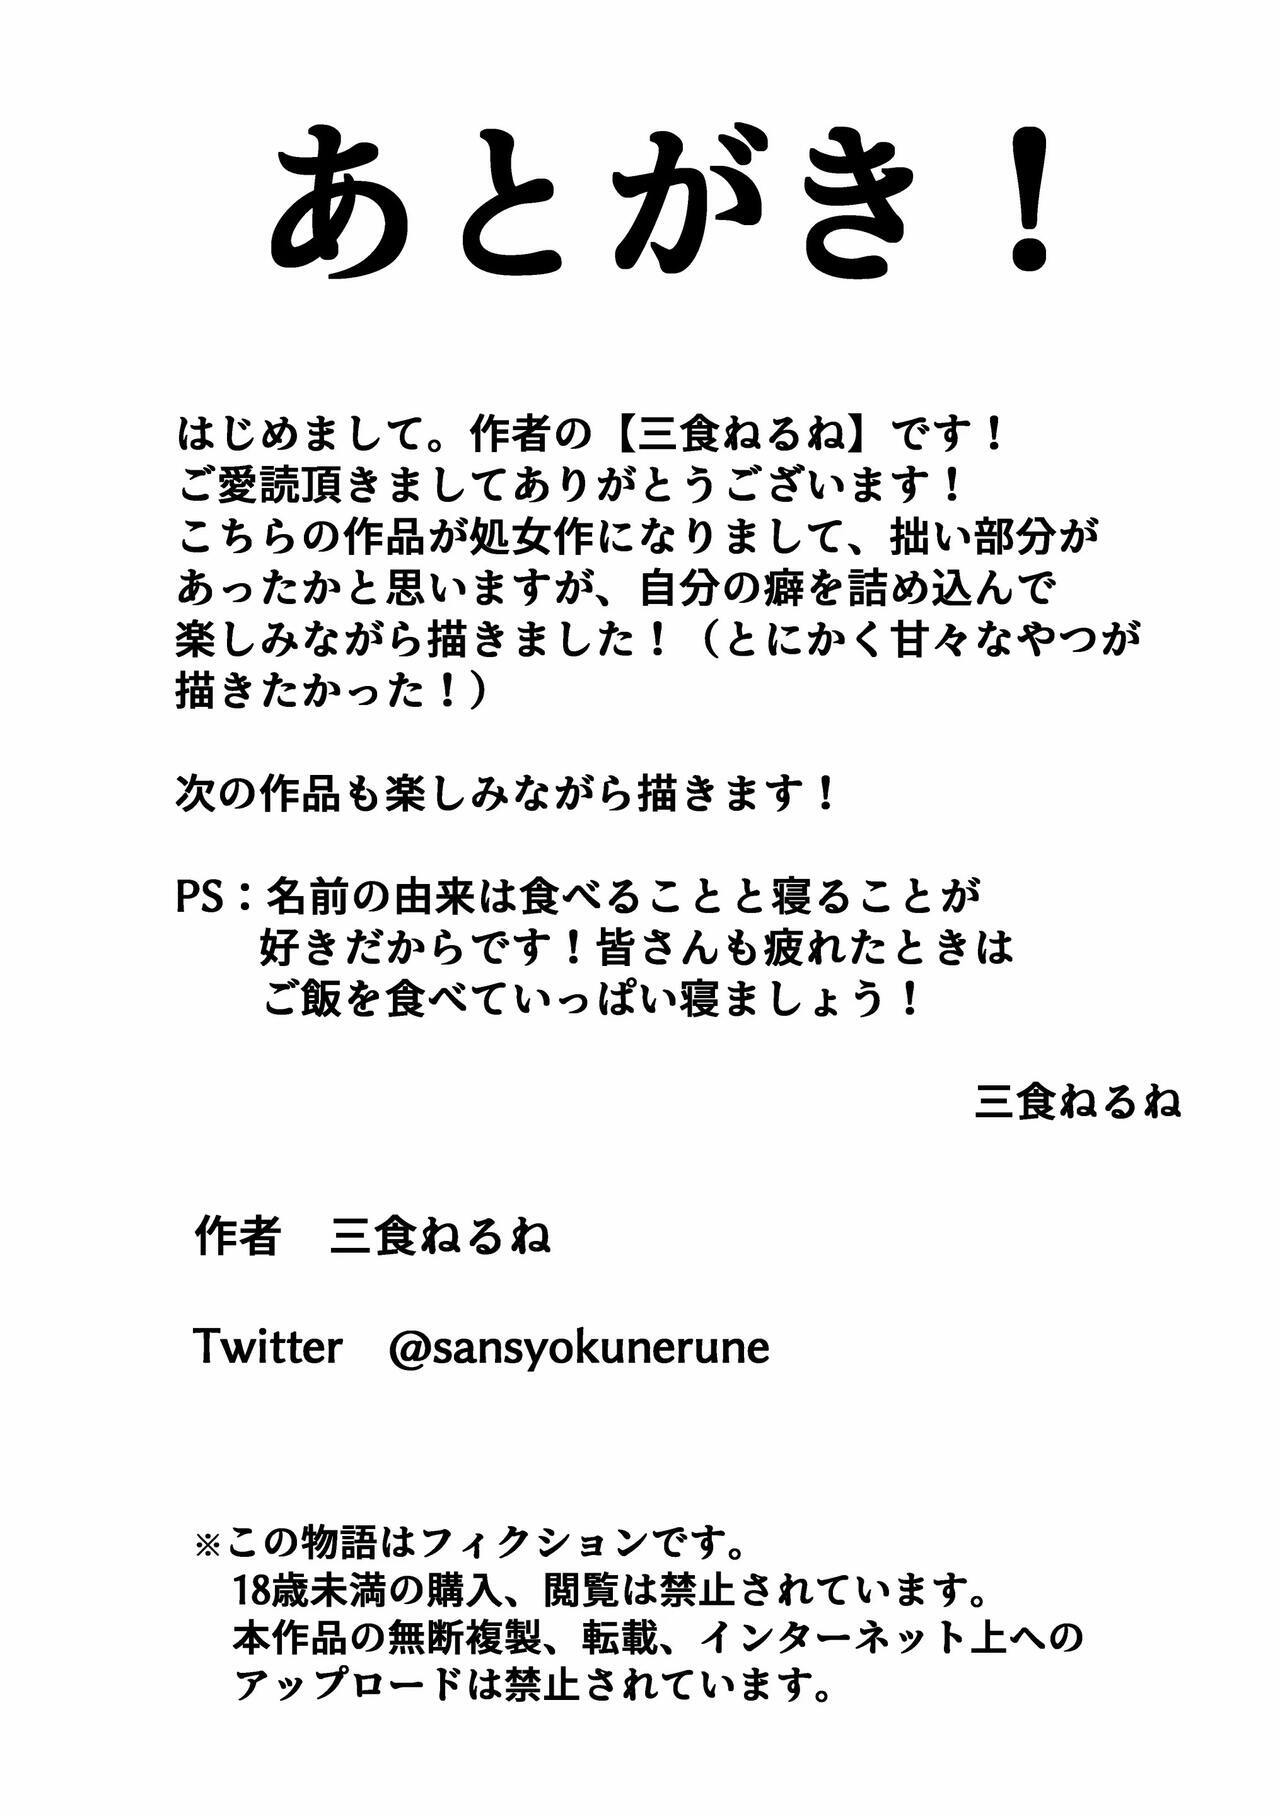 あとがき！
はじめまして。作者の【三食ねるね】です！
ご愛読頂きましてありがとうございます！
こちらの作品が処女作になりまして、拙い部分が
あったかと思いますが、自分の癖を詰め込んで
楽しみながら描きました！（とにかく甘々なやつが
描きたかった！）
次の作品も楽しみながら描きます！
PS：名前の由来は食べることと寝ることが
好きだからです！皆さんも疲れたときは
ご飯を食べていっぱい寝ましょう！
三食ねるね
作者　三食ねるね
Twitter　@sansyokunerune
※この物語はフィクションです。
18歳未満の購入、閲覧は禁止されています。
本作品の無断複製、転載、インターネット上への
アップロードは禁止されています。